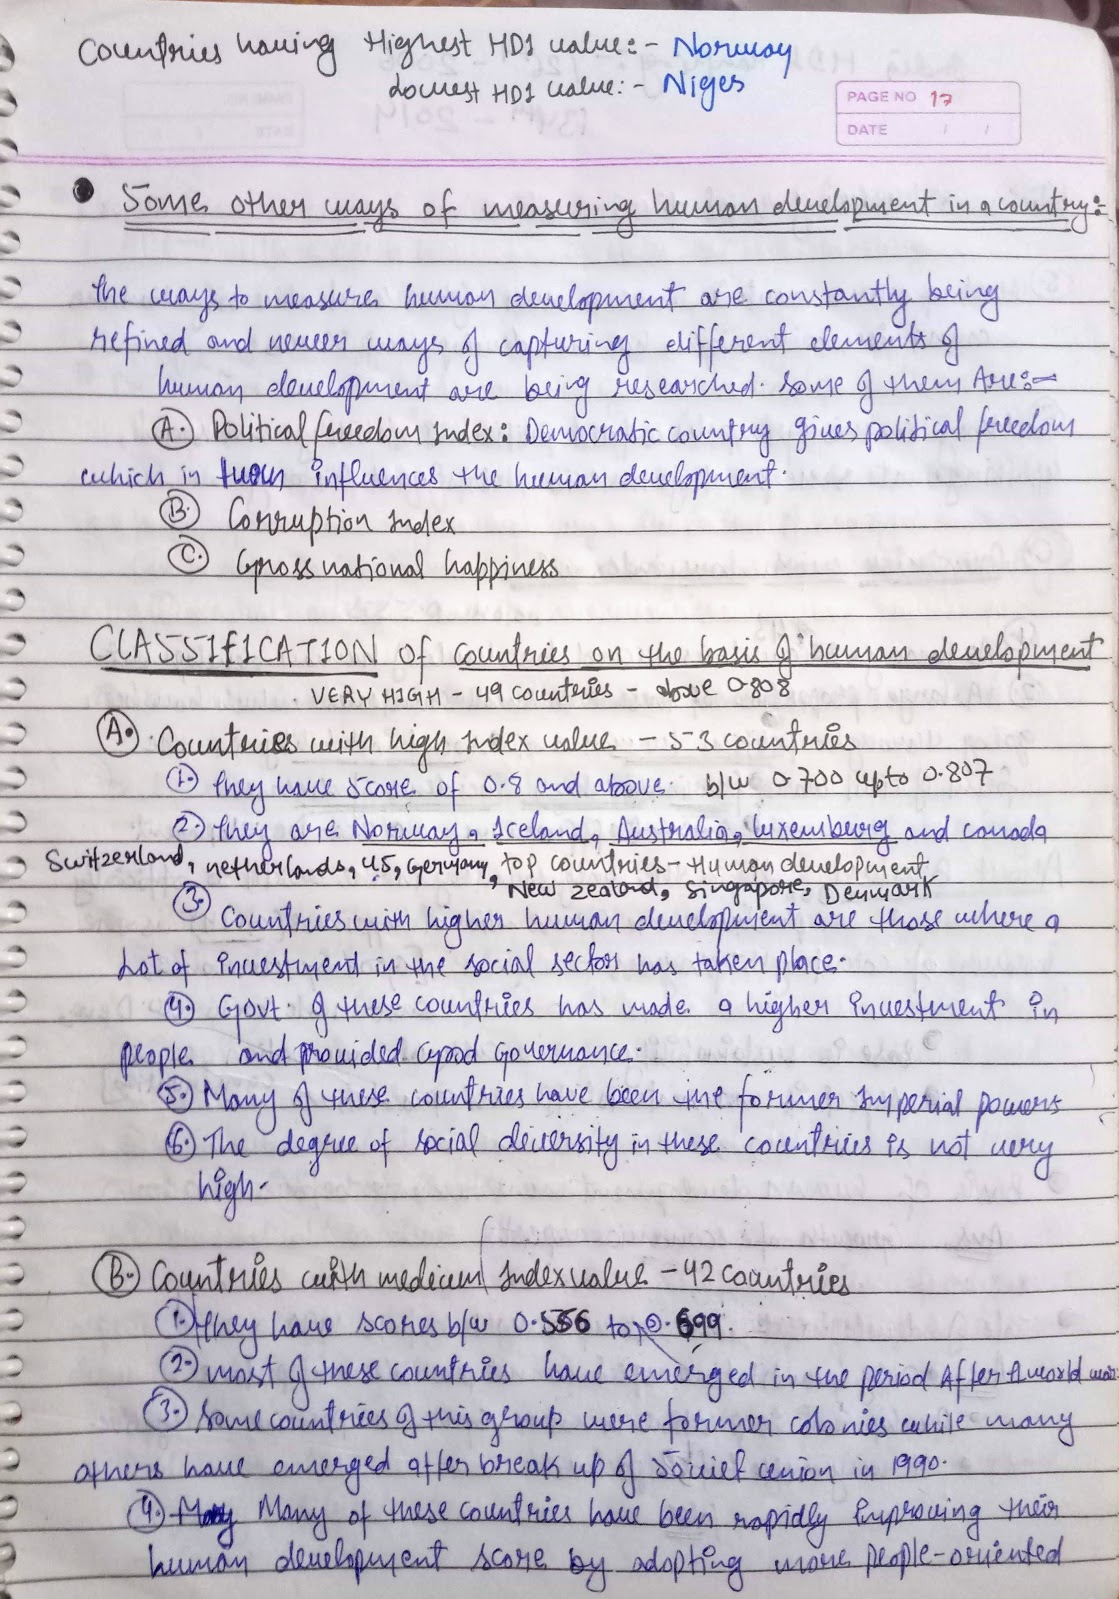 Countries having Highest HDI value:- Norway
Lowest HDI value:- Niger
PAGE NO 17
DATE / /
• Some other ways of measuring human development in a country:-
The ways to measure human development are constantly being
refined and newer ways of capturing different elements of
human development are being researched. Some of them Are:-
A. Political freedom Index: Democratic country gives political freedom
which in turn influences the human development.
B. Corruption Index
C. Gross national happiness
CLASSIfICATION of countries on the basis of human development
VERY HIGH - 49 countries - above 0.808
A. Countries with high Index value - 53 countries
1. They have score of 0.8 and above. b/w 0.700 upto 0.807
2. They are Norway, Iceland, Australia, Luxemburg and canada
Switzerland, netherlands, US, Germany, top countries - Human development
New zealand, Singapore, Denmark
3. Countries with higher human development are those where a
Lot of investment in the social sector has taken place.
4. Govt. of these countries has made a higher investment in
people and provided Good Governance.
5. Many of these countries have been the former Imperial powers
6. The degree of social diversity in these countries is not very
high.
B. Countries with medium Index value - 42 countries
1. They have scores b/w 0.556 to 0.699.
2. most of these countries have emerged in the period After world war
3. Some countries of this group were former colonies while many
others have emerged after break up of Soviet union in 1990.
4. Many Many of these countries have been rapidly improving their
human development score by adopting more people-oriented